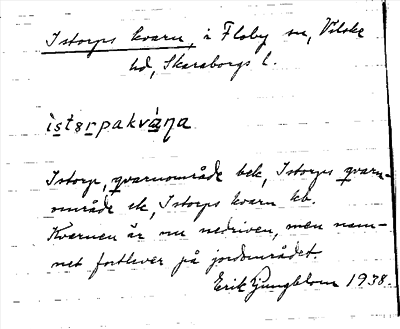 Istorps kvarn, i Floby sn, Vilske
hd, Skaraborgs l.
ìsterpakvá̱ŋa
Istorp, qvarnområde bek, Istorps qvarn-
område ek, Istorps kvarn kb.
Kvarnen är nu nedriven, men nam-
net fortlever på jordområdet.
Erik Ljungblom 1938.